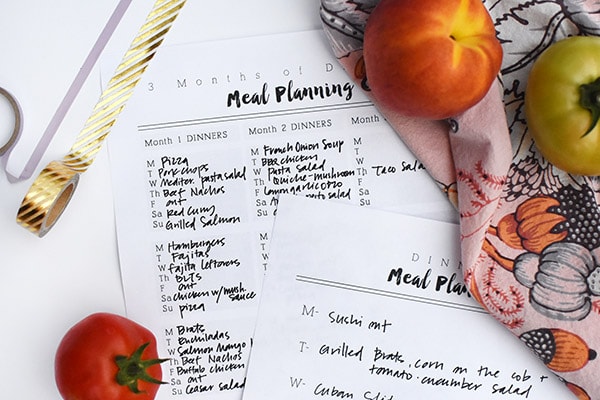 3 Months of D
Meal Planning
Month 1 DINNERS
M Pizza
T Pork chops
W Mediter. pasta salad
Th Beef Nachos
F out
Sa Red curry
Su Grilled Salmon
M Hamburgers
T Fajitas
W Fajita leftovers
Th BLTs
F out
Sa chicken w/ mush. sauce
Su pizza
M Brats
T Enchiladas
W Salmon Mango
Th Beef Nachos
F Buffalo chicken
Sa out
Su Ceasar salad
Month 2 DINNERS
M French Onion Soup
T BBQ chicken
W Pasta Salad
Th Quiche-mushroom
F Lemon garlic orzo
Sa pasta salad
Su
Month
M
T
W
Th Taco Salad
F
Sa
DINN
Meal Plan
M- Sushi out
T- Grilled Brats, corn on the cob +
tomato-cucumber salad
W- Cuban